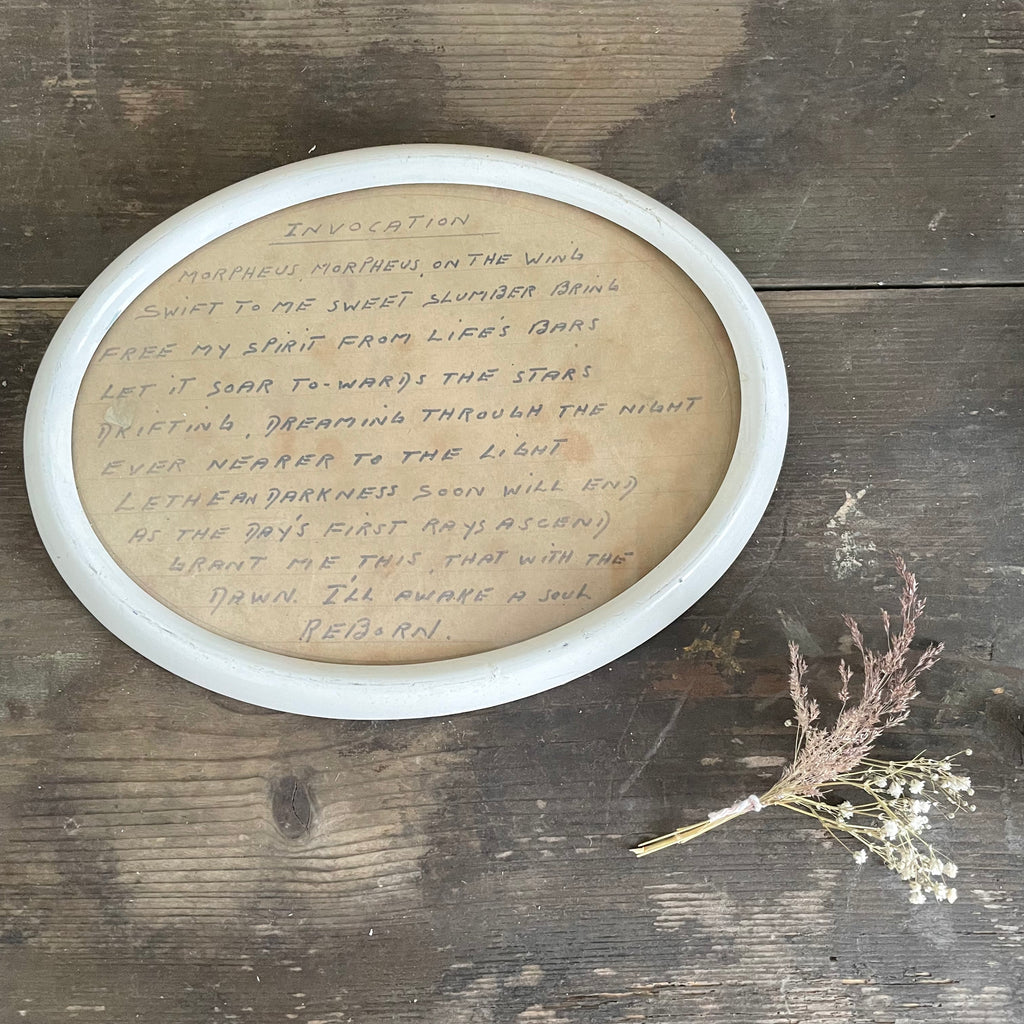 INVOCATION
MORPHEUS, MORPHEUS, ON THE WING
SWIFT TO ME SWEET SLUMBER BRING
FREE MY SPIRIT FROM LIFE'S BARS
LET IT SOAR TO-WARDS THE STARS
DRIFTING, DREAMING THROUGH THE NIGHT
EVER NEARER TO THE LIGHT
LETHEAN DARKNESS SOON WILL END
AS THE DAY'S FIRST RAYS ASCEND
GRANT ME THIS, THAT WITH THE
DAWN. I'LL AWAKE A SOUL
REBORN.